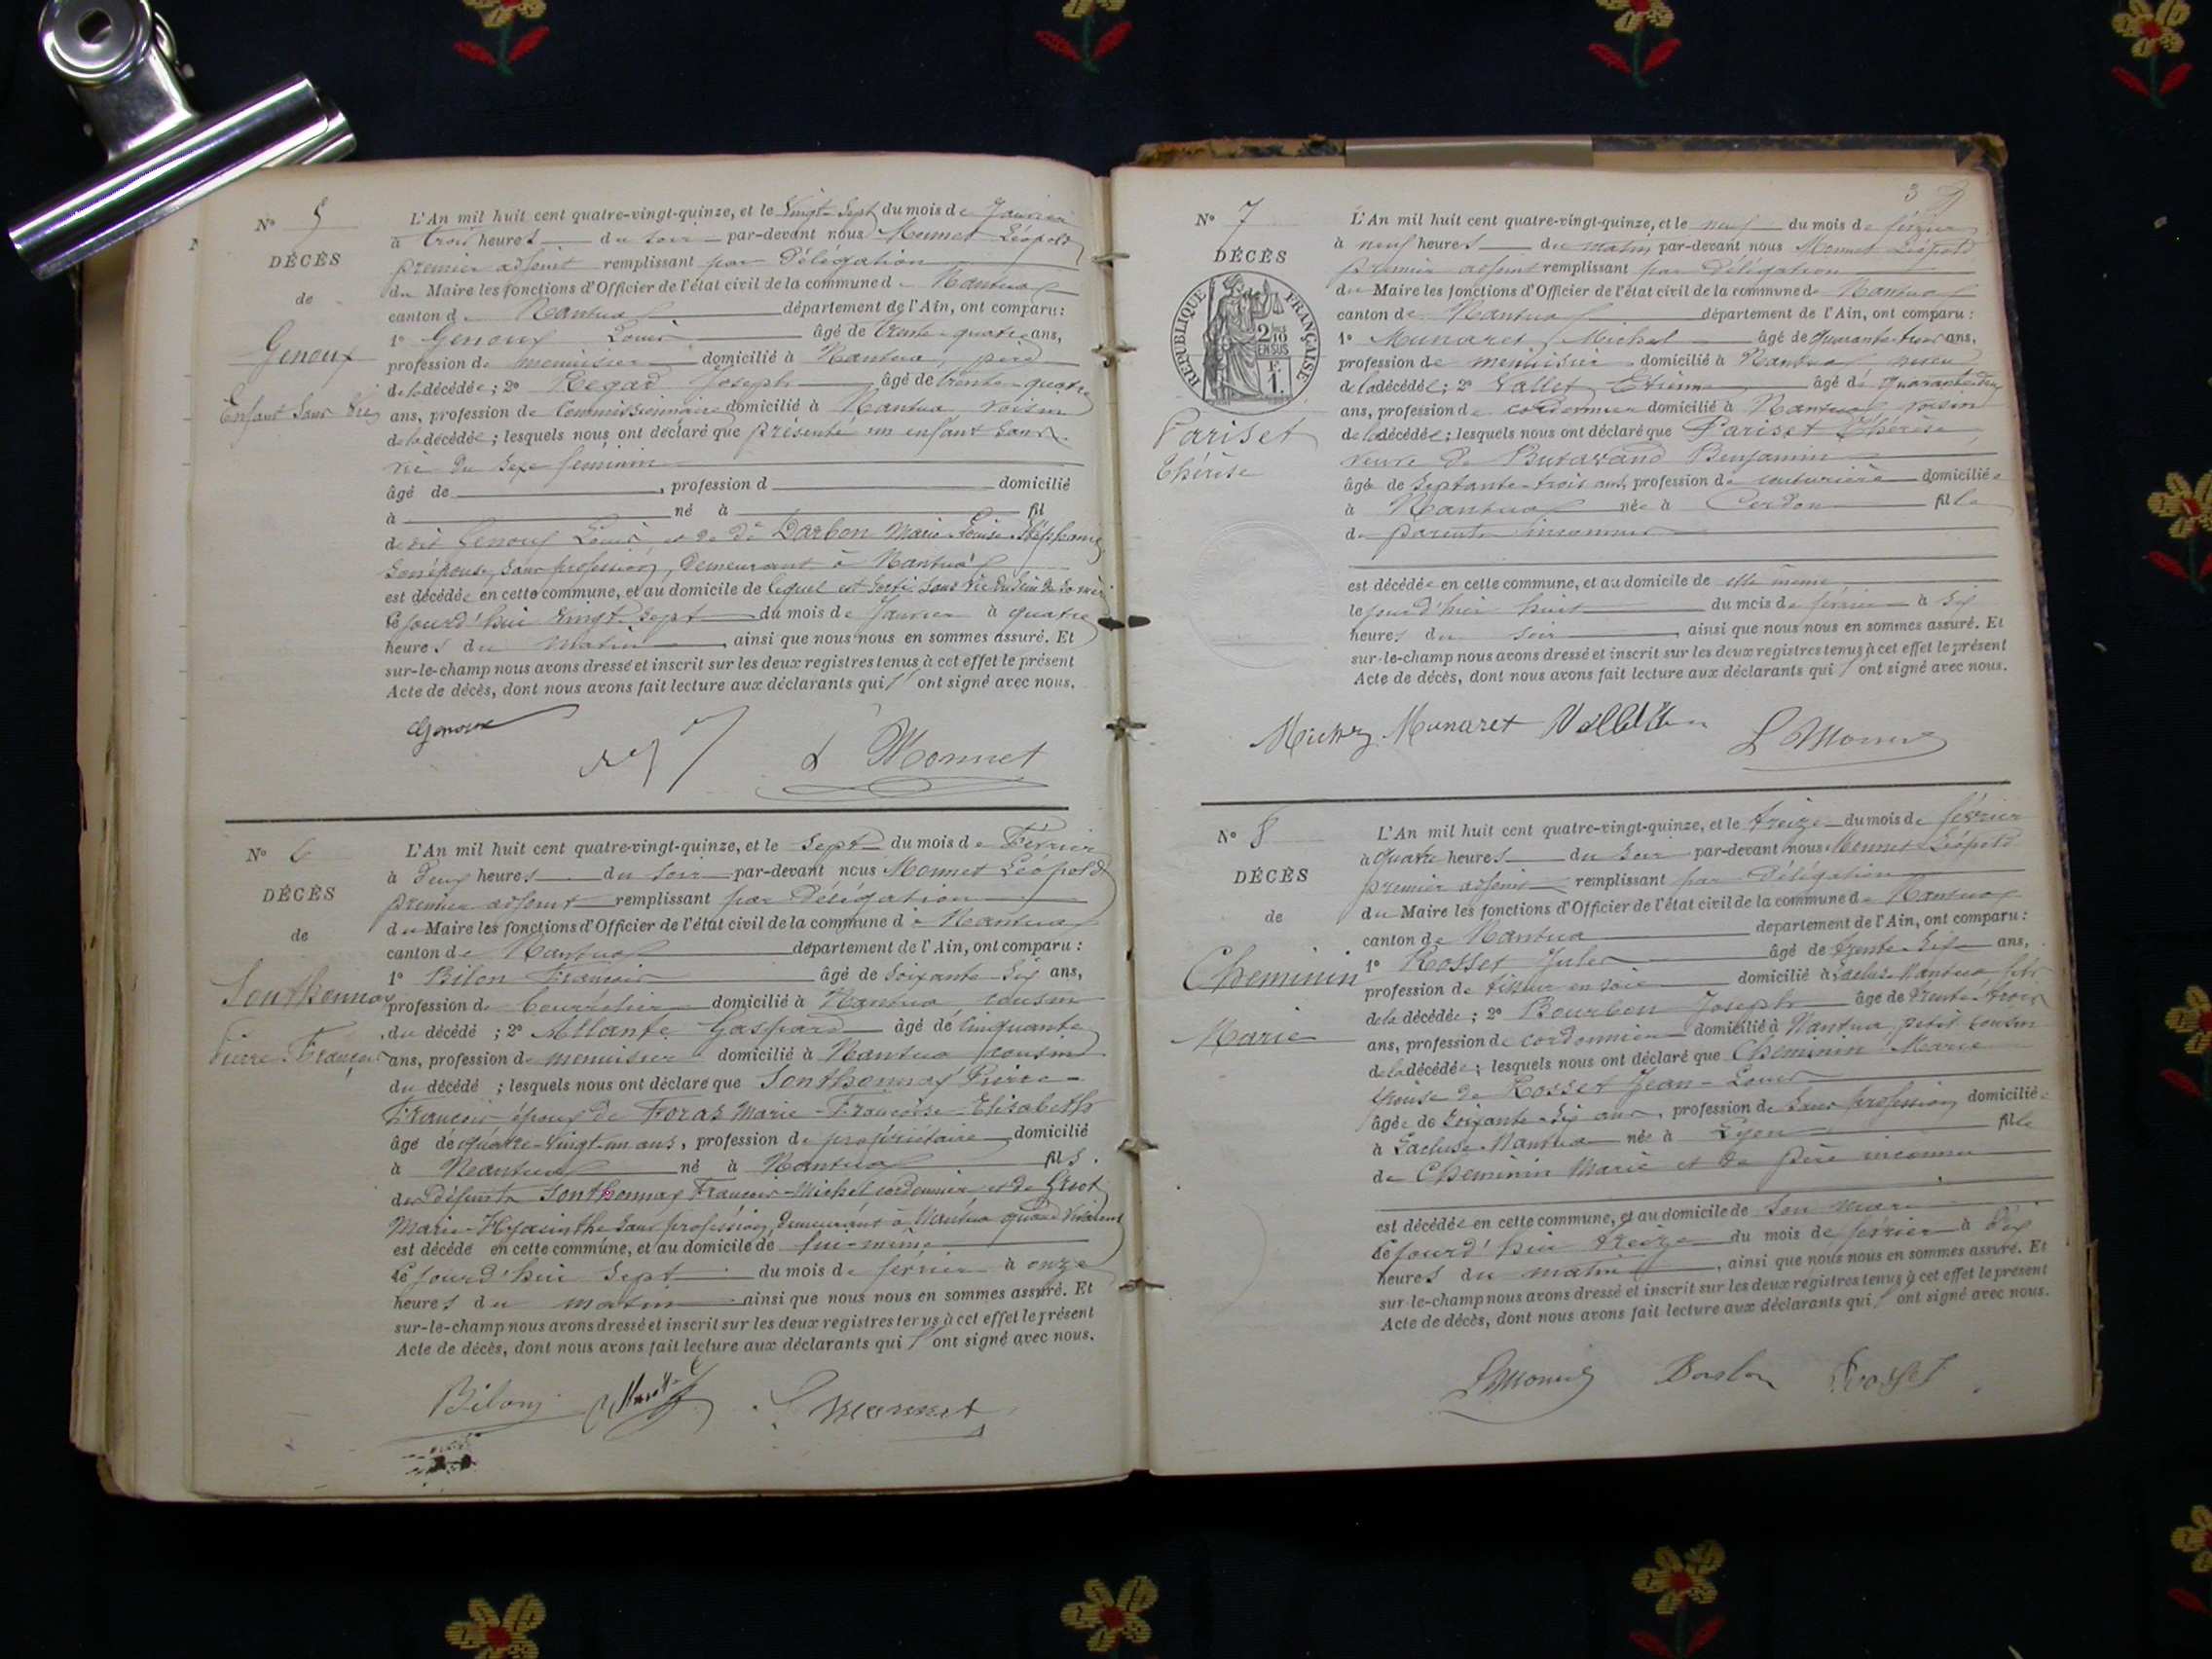 N° 5
DÉCÈS
de
Genoux
Enfant sans vie
L'An mil huit cent quatre-vingt-quinze, et le vingt-sept du mois de Janvier
à trois heures du soir par-devant nous Monnet Léopold
premier adjoint remplissant par délégation
du Maire les fonctions d'Officier de l'état civil de la commune de Nantua
canton de Nantua département de l'Ain, ont comparu :
1° Genoux Louis âgé de trente-quatre ans,
profession de menuisier domicilié à Nantua, père
de la décédée ; 2° Regad Joseph âgé de trente-quatre
ans, profession de Commissionnaire domicilié à Nantua, voisin
de la décédée ; lesquels nous ont déclaré que présenté un enfant sans
vie du sexe féminin
âgé de , profession d domicilié
à né à fil
de dit Genoux Louis et de De Darbon Marie-Louise-Stéphanie
son épouse, sans profession, demeurant à Nantua
est décédée en cette commune, et au domicile de lequel est sorti sans vie du sein de sa mère
le jourd'hui vingt-sept du mois de Janvier à quatre
heures du matin ainsi que nous nous en sommes assuré. Et
sur-le-champ nous avons dressé et inscrit sur les deux registres tenus à cet effet le présent
Acte de décès, dont nous avons fait lecture aux déclarants qui ont signé avec nous.
Genoux
L Monnet
N° 6
DÉCÈS
de
Sonthonnax
Pierre-François
L'An mil huit cent quatre-vingt-quinze, et le sept du mois de Février
à deux heures du soir par-devant nous Monnet Léopold
premier adjoint remplissant par délégation
du Maire les fonctions d'Officier de l'état civil de la commune de Nantua
canton de Nantua département de l'Ain, ont comparu :
1° Bilon François âgé de soixante-six ans,
profession de bourrelier domicilié à Nantua cousin
du décédé ; 2° Allante Gaspard âgé de cinquante
ans, profession de menuisier domicilié à Nantua cousin
du décédé ; lesquels nous ont déclaré que Sonthonnax Pierre-
François époux de Foraz Marie-Françoise-Elisabeth
âgé de quatre-vingt-un ans, profession de propriétaire domicilié
à Nantua né à Nantua fils
des défunts Sonthonnax François-Michel cordonnier et de
Marie-Hyacinthe sans profession, demeurant à Nantua quand vivaient
est décédé en cette commune, et au domicile de lui-même
le jourd'hui sept du mois de février à onze
heures du matin ainsi que nous nous en sommes assuré. Et
sur-le-champ nous avons dressé et inscrit sur les deux registres tenus à cet effet le présent
Acte de décès, dont nous avons fait lecture aux déclarants qui ont signé avec nous.
Bilon L Monnet
3
N° 7
DÉCÈS
RÉPUBLIQUE FRANÇAISE
2/10 EN SUS
F. 1.
Pariset
Thérèse
L'An mil huit cent quatre-vingt-quinze, et le neuf du mois de février
à neuf heures du matin par-devant nous Monnet Léopold
premier adjoint remplissant par délégation
du Maire les fonctions d'Officier de l'état civil de la commune de Nantua
canton de Nantua département de l'Ain, ont comparu :
1° Munaret Michel âgé de quarante-trois ans,
profession de menuisier domicilié à Nantua neveu
de la décédée ; 2° Vallet Etienne âgé de quarante-deux
ans, profession de cordonnier domicilié à Nantua voisin
de la décédée ; lesquels nous ont déclaré que Pariset Thérèse
veuve de Butavand Benjamin
âgée de septante-trois ans, profession de couturière domiciliée
à Nantua née à Cerdon fille
de parents inconnus
est décédée en cette commune, et au domicile de elle même
le jour d'hier huit du mois de février à six
heures du soir ainsi que nous nous en sommes assuré. Et
sur-le-champ nous avons dressé et inscrit sur les deux registres tenus à cet effet le présent
Acte de décès, dont nous avons fait lecture aux déclarants qui ont signé avec nous.
Michel Munaret L Monnet
N° 8
DÉCÈS
de
Cheminin
Marie
L'An mil huit cent quatre-vingt-quinze, et le treize du mois de février
à quatre heures du soir par-devant nous Monnet Léopold
premier adjoint remplissant par délégation
du Maire les fonctions d'Officier de l'état civil de la commune de Nantua
canton de Nantua département de l'Ain, ont comparu :
1° Rosset Jules âgé de trente-six ans,
profession de tisseur en soie domicilié à Lacluse-Nantua fils
de la décédée ; 2° Bourbon Joseph âgé de trente-trois
ans, profession de cordonnier domicilié à Nantua, petit cousin
de la décédée ; lesquels nous ont déclaré que Cheminin Marie
épouse de Rosset Jean-Louis
âgée de soixante-six ans, profession de sans profession domiciliée
à Lacluse-Nantua née à Lyon fille
de Cheminin Marie et de père inconnu
est décédée en cette commune, et au domicile de son mari
le jourd'hui treize du mois de février à dix
heures du matin , ainsi que nous nous en sommes assuré. Et
sur-le-champ nous avons dressé et inscrit sur les deux registres tenus à cet effet le présent
Acte de décès, dont nous avons fait lecture aux déclarants qui ont signé avec nous.
L Monnet Bourbon Rosset